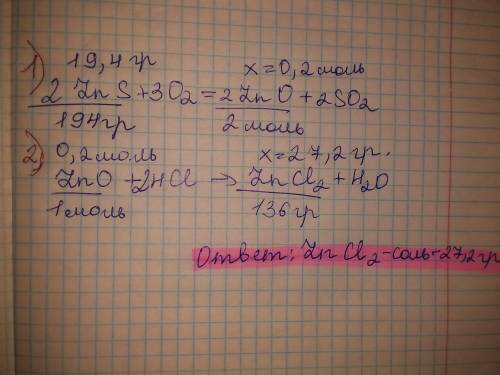 1) 19,4 гр x=0,2 моль
2 ZnS+3O₂=2ZnO+2SO₂
194гр 2 моль
2) 0,2 моль x=27,2 гр.
ZnO+2HCl→ZnCl₂+H₂O
1 моль 136 гр
Ответ: ZnCl₂-соль-27,2 гр